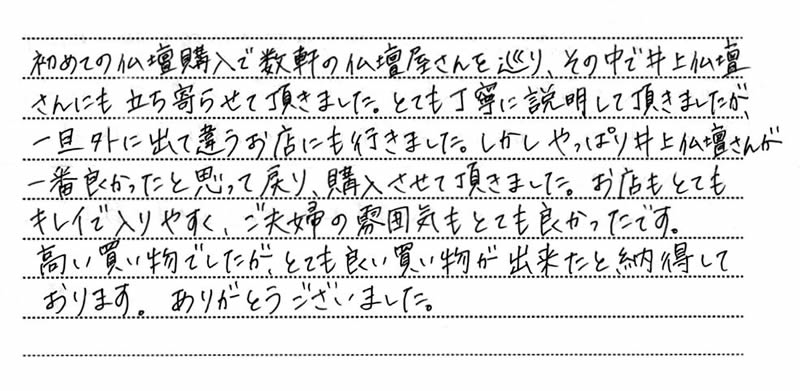 初めての仏壇購入で数軒の仏壇屋さんを巡り、その中で井上仏壇
さんにも立ち寄らせて頂きました。とても丁寧に説明して頂きましたが、
一旦外に出て違うお店にも行きました。しかしやっぱり井上仏壇さんが
一番良かったと思って戻り、購入させて頂きました。お店もとても
キレイで入りやすく、ご夫婦の雰囲気もとても良かったです。
高い買い物でしたが、とても良い買い物が出来たと納得して
おります。ありがとうございました。